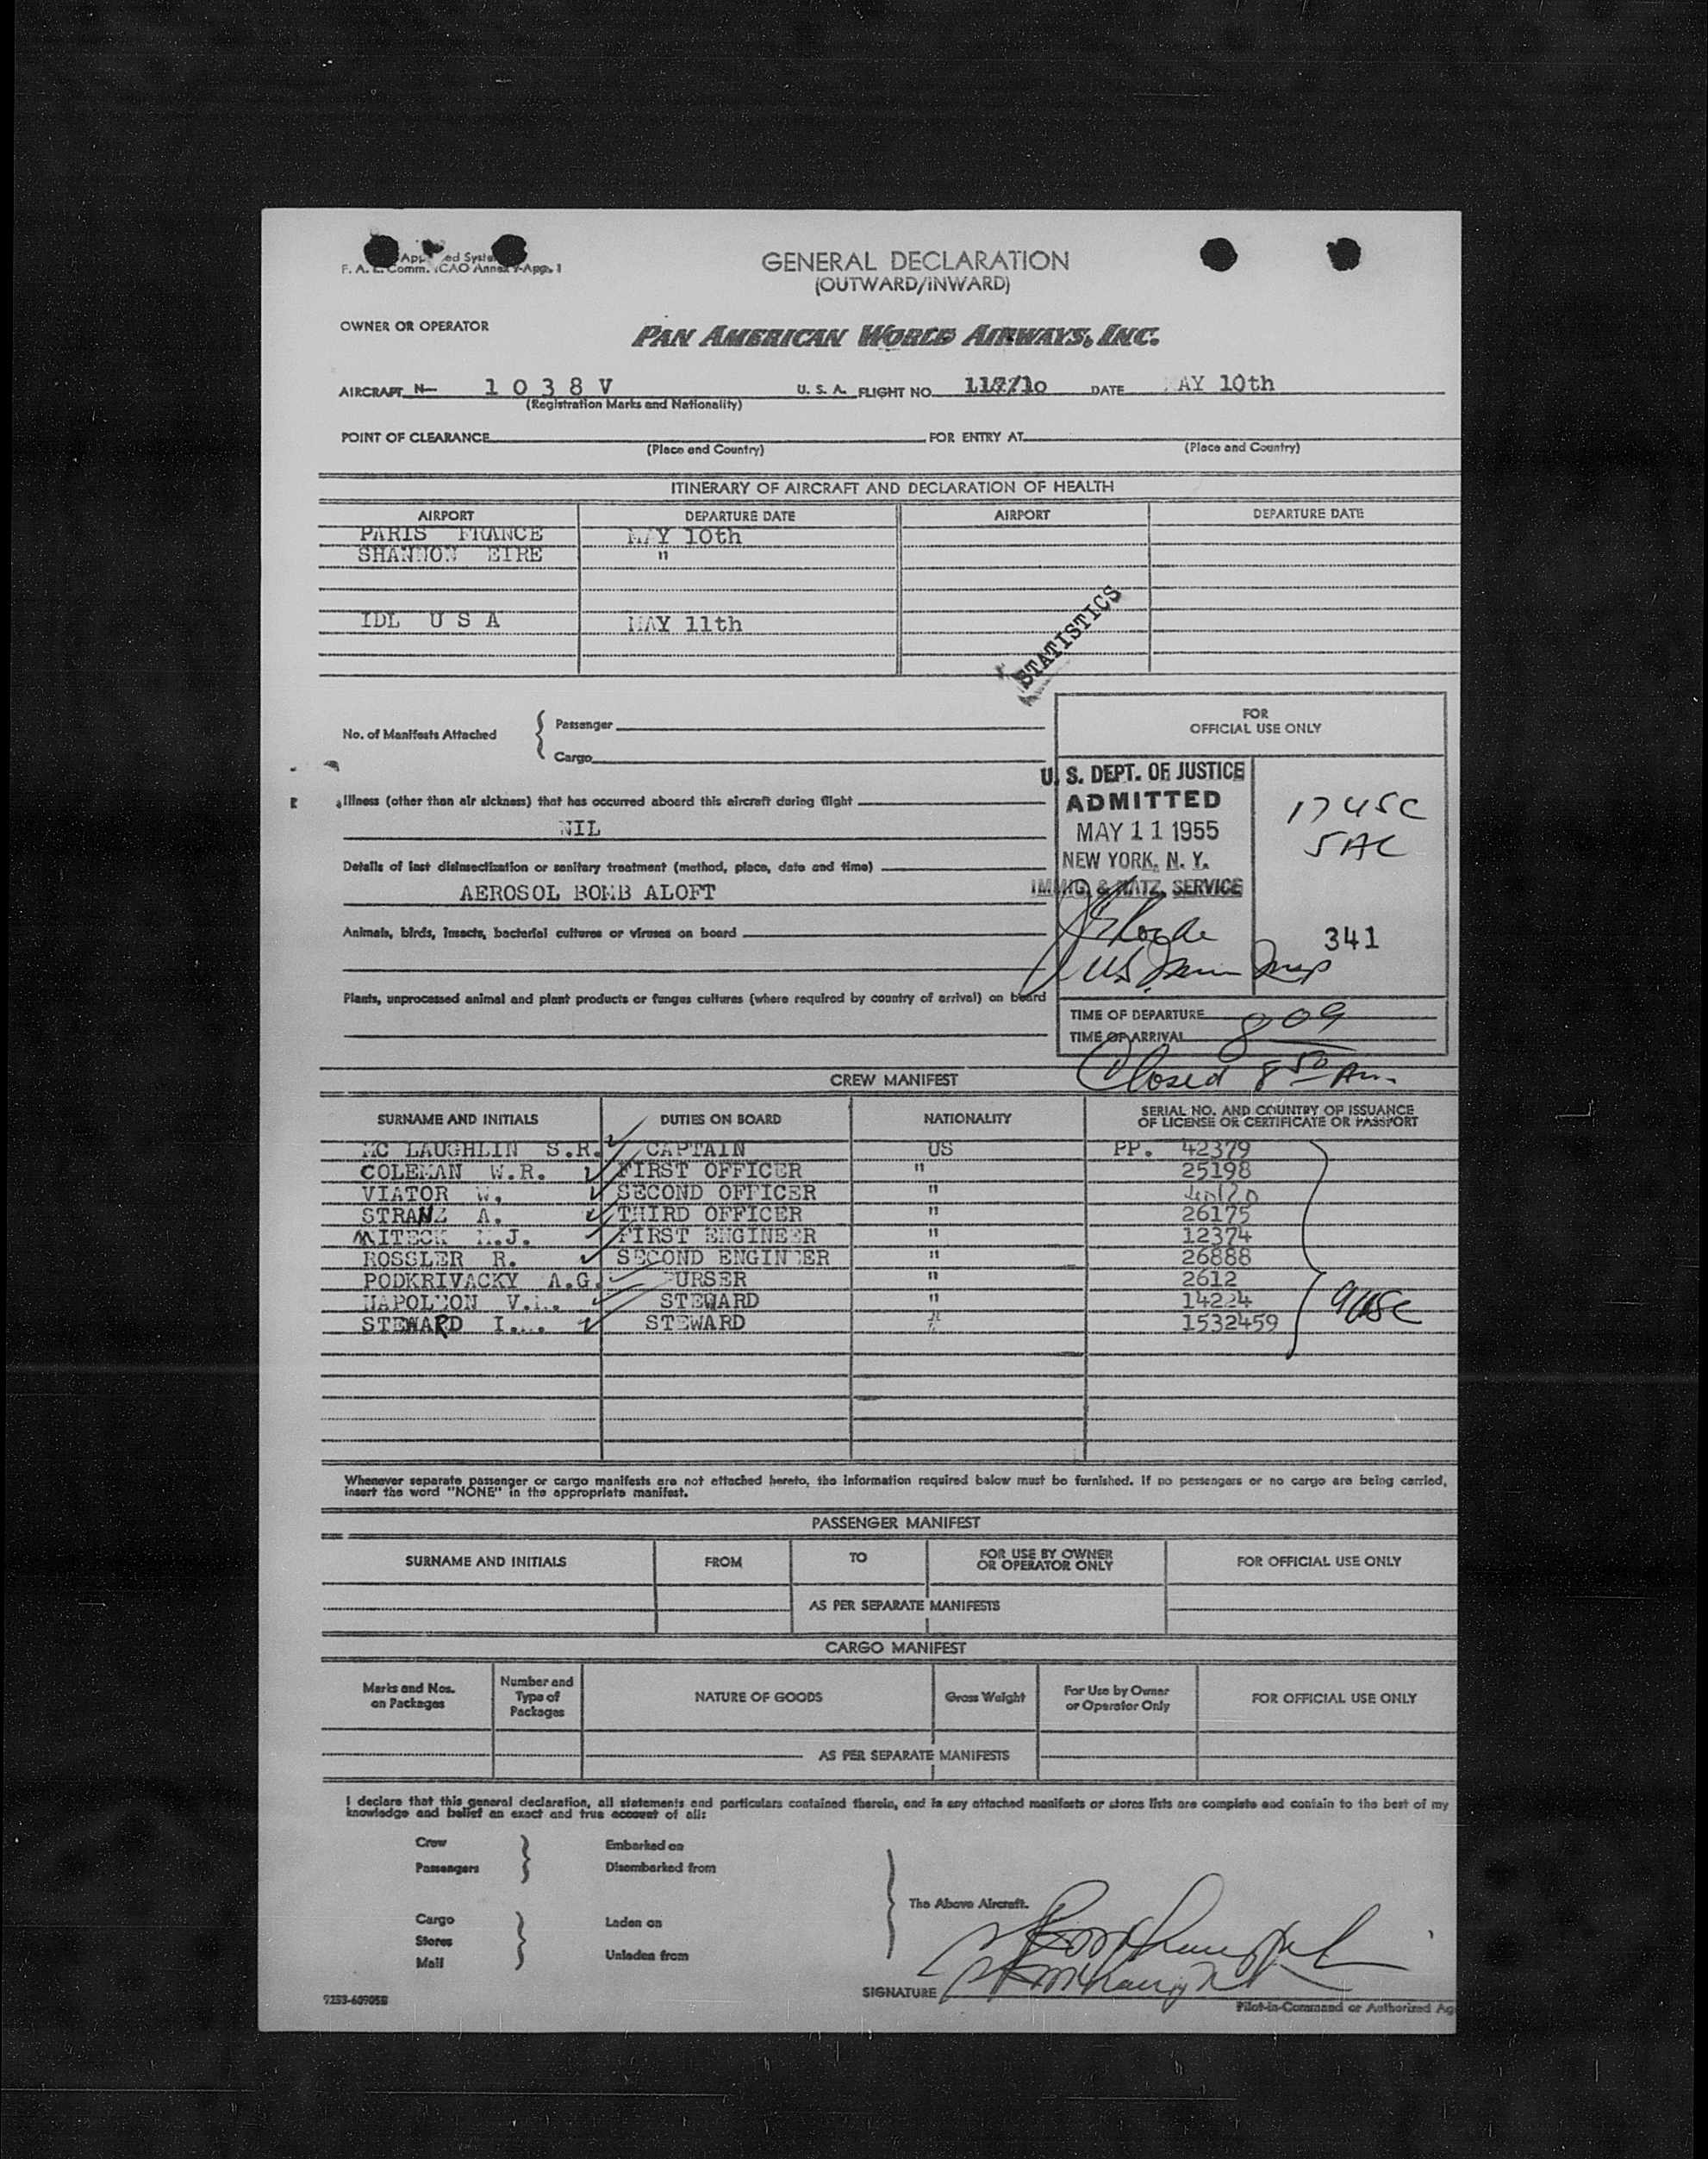 GENERAL DECLARATION
(OUTWARD/INWARD)
F. A. L. Comm. ICAO Annex 9-App. 1
OWNER OR OPERATOR
PAN AMERICAN WORLD AIRWAYS, INC.
AIRCRAFT N— 1 0 3 8 V U. S. A. FLIGHT NO. DATE MAY 10th
(Registration Marks and Nationality)
POINT OF CLEARANCE FOR ENTRY AT
(Place and Country) (Place and Country)
ITINERARY OF AIRCRAFT AND DECLARATION OF HEALTH
AIRPORT DEPARTURE DATE AIRPORT DEPARTURE DATE
PARIS FRANCE MAY 10th
SHANNON EIRE "
IDL U S A MAY 11th
STATISTICS
No. of Manifests Attached { Passenger
Cargo
FOR
OFFICIAL USE ONLY
U. S. DEPT. OF JUSTICE
ADMITTED
MAY 11 1955
NEW YORK, N. Y.
IMMIG. & NATZ. SERVICE
17 USC
5 AC
341
Illness (other than air sickness) that has occurred aboard this aircraft during flight
NIL
Details of last disinsectization or sanitary treatment (method, place, date and time)
AEROSOL BOMB ALOFT
Animals, birds, insects, bacterial cultures or viruses on board
Plants, unprocessed animal and plant products or fungus cultures (where required by country of arrival) on board
TIME OF DEPARTURE
TIME OF ARRIVAL 8 09
Closed 8 50 Am
CREW MANIFEST
SURNAME AND INITIALS DUTIES ON BOARD NATIONALITY SERIAL NO. AND COUNTRY OF ISSUANCE
OF LICENSE OR CERTIFICATE OR PASSPORT
MC LAUGHLIN S.R. CAPTAIN US PP. 42379
COLEMAN W.R. FIRST OFFICER " 25198
VIATOR W. SECOND OFFICER "
STRANZ A. THIRD OFFICER " 26175
MITECK M.J. FIRST ENGINEER " 12374
ROSSLER R. SECOND ENGINEER " 26888
PODKRIVACKY A.G. PURSER " 2612
NAPOLEON V. STEWARD " 14224
STEWARD I. STEWARD " 1532459
9 USC
Whenever separate passenger or cargo manifests are not attached hereto, the information required below must be furnished. If no passengers or no cargo are being carried,
insert the word "NONE" in the appropriate manifest.
PASSENGER MANIFEST
SURNAME AND INITIALS FROM TO FOR USE BY OWNER
OR OPERATOR ONLY FOR OFFICIAL USE ONLY
AS PER SEPARATE MANIFESTS
CARGO MANIFEST
Marks and Nos.
on Packages
Number and
Type of
Packages
NATURE OF GOODS
Gross Weight
For Use by Owner
or Operator Only
FOR OFFICIAL USE ONLY
AS PER SEPARATE MANIFESTS
I declare that this general declaration, all statements and particulars contained therein, and in any attached manifests or stores lists are complete and contain to the best of my
knowledge and belief an exact and true account of all:
Crew Embarked on
Passengers Disembarked from
The Above Aircraft.
Cargo Laden on
Stores
Mail Unladen from
SIGNATURE
Pilot-in-Command or Authorized Ag